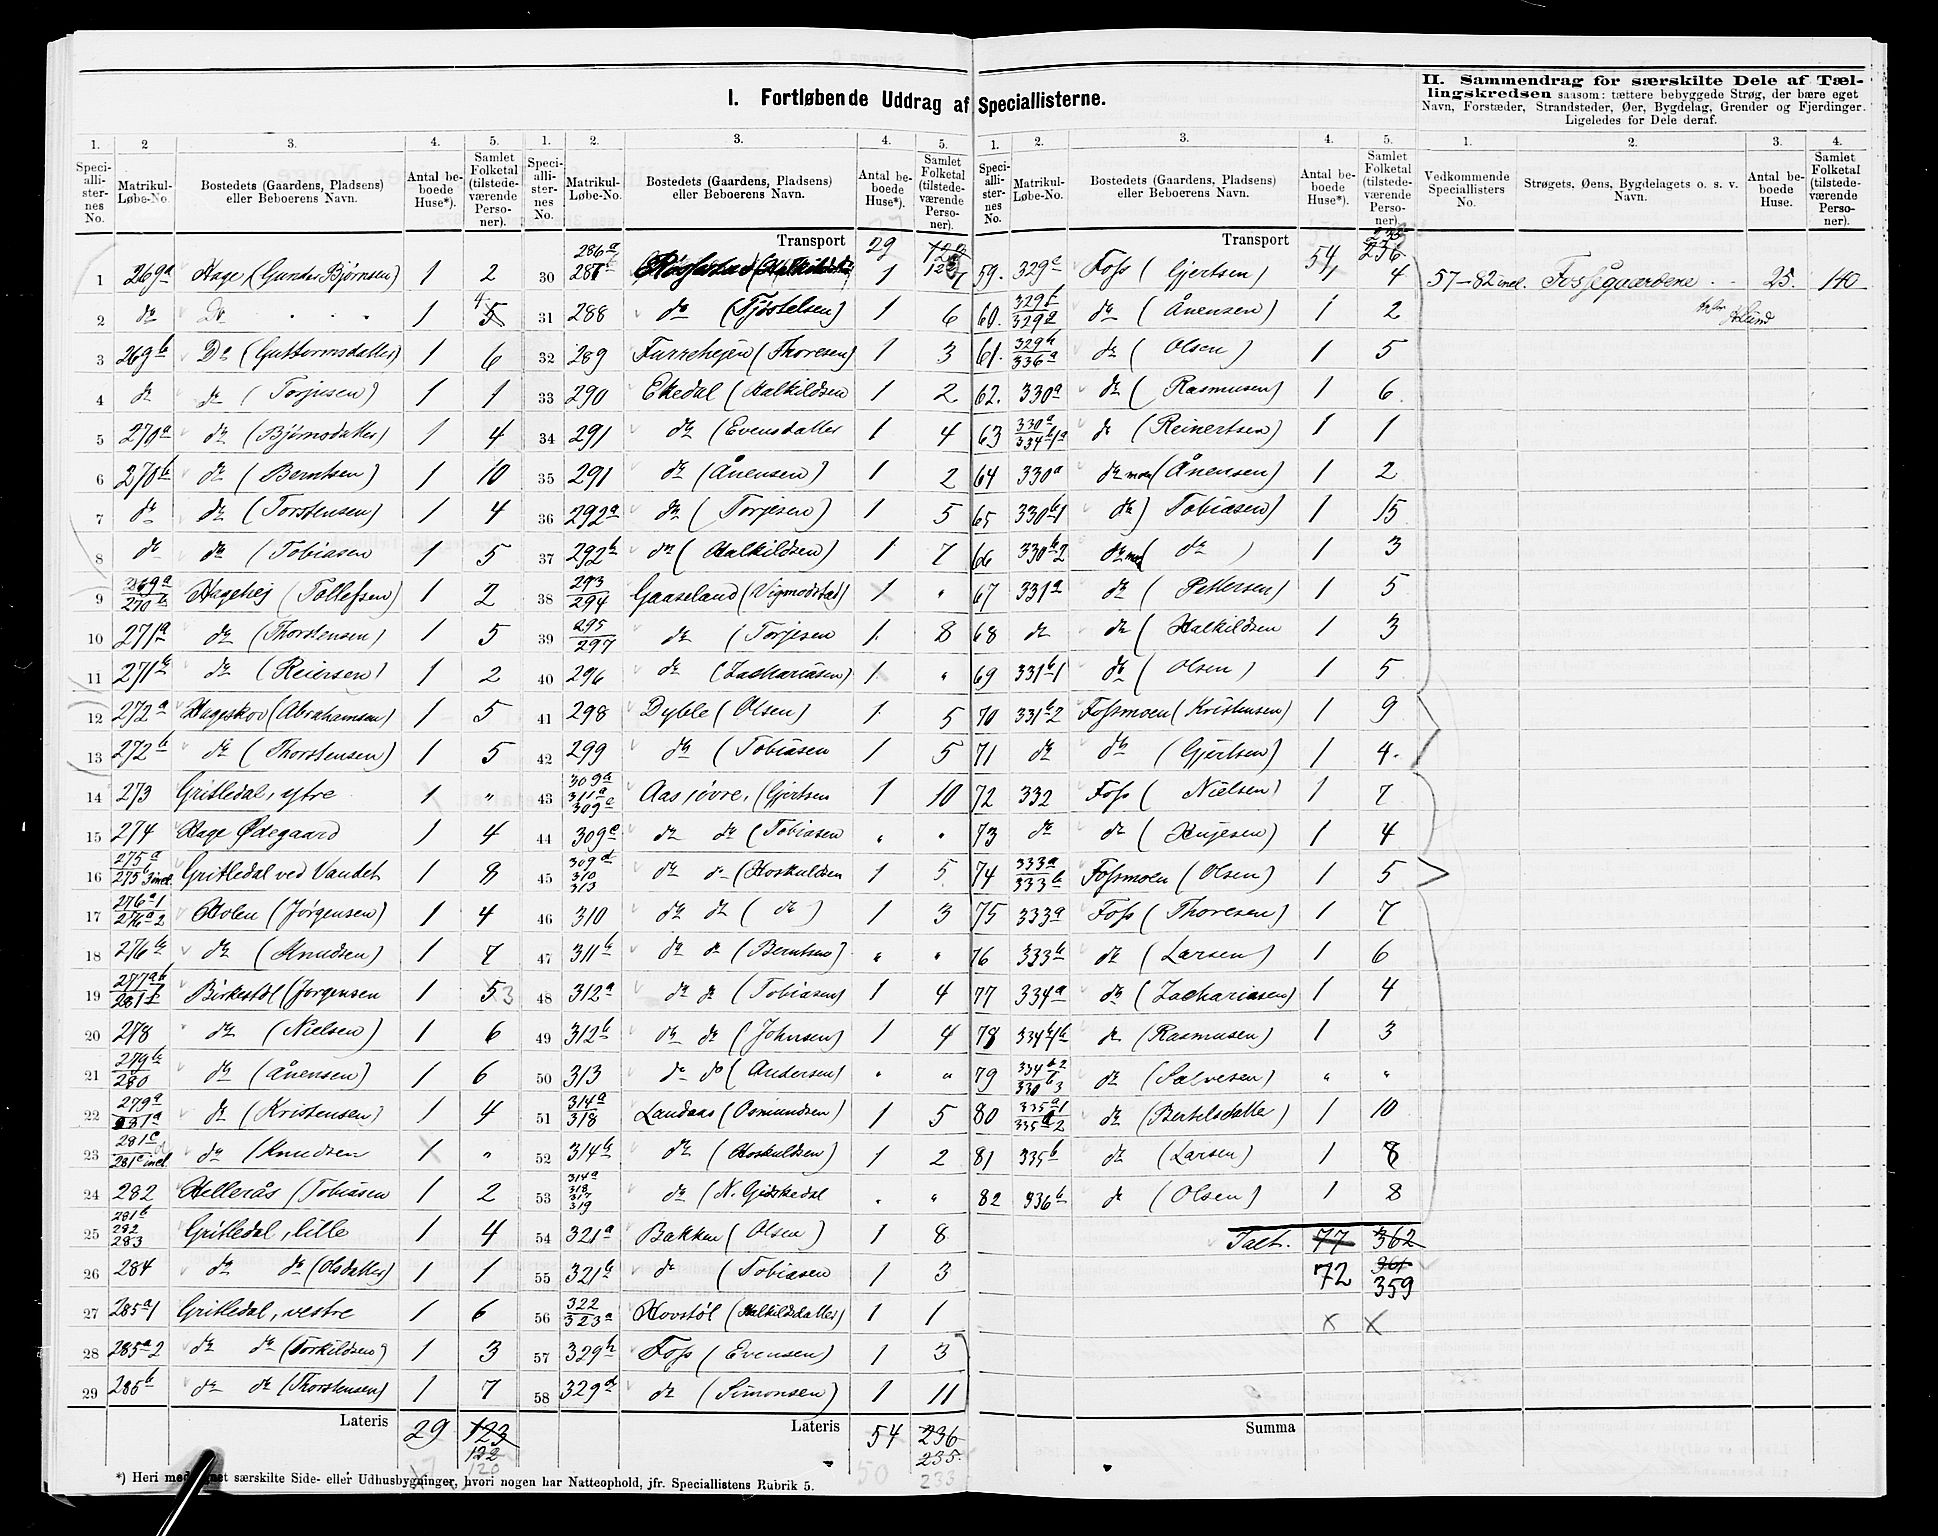 I. Fortløbende Uddrag af Speciallisterne.
II. Sammendrag for særskilte Dele af Tællingskredsen saasom: tættere bebyggede Strøg, der bære eget Navn, Forstæder, Strandsteder, Øer, Bygdelag, Grender og Fjerdinger. Ligeledes for Dele deraf.
1. 2 3. 4. 5.
Speciallisternes No. Matrikul-Løbe-No. Bostedets (Gaardens, Pladsens) eller Beboerens Navn. Antal beboede Huse*). Samlet Folketal (tilstedeværende Personer).
1 269a Hage (Gunder Bjørnsen) 1 2
2 do Do 1 4 5
3 269b Do (Guttormsdatter) 1 6
4 do do (Torjusen) 1 1
5 270a do (Bjørnsdatter) 1 4
6 270b do (Berntsen) 1 10
7 do do (Torstensen) 1 4
8 do do (Tobiasen 1 5
9 269a 270b Hagehej (Tollefsen) 1 2
10 271a do (Thorstensen) 1 5
11 271b do (Reiersen) 1 2
12 272a Hageskov (Abrahamsen) 1 5
13 272b do (Thorstensen) 1 5
14 273 Gritledal, ytre 1 "
15 274 Hage Ødegaard 1 4
16 275a 275b3 incl. Gritledal ved Vandet 1 8
17 276a1 276a2 Holen (Jørgensen) 1 4
18 276b do (Knudsen) 1 7
19 277ab 281f Birkestøl (Jørgensen 1 5 3
20 278 do (Nielsen) 1 6
21 279b 280 do (Ånensen) 1 6
22 279a 281a do (Kristensen) 1 4
23 281c 281e incl. do (Knudsen 1 "
24 282 Hellerås (Tobiasen 1 2
25 281b 282 283 Gritledal, lille 1 4
26 284 do do (Olsdatter) 1 1
27 285a1 Gritledal, vestre 1 6
28 285a2 do do (Torkildsen) 1 3
29 285b do do (Thorstensen) 1 7
Lateris 29 123
122
120
1. 2. 3. 4. 5.
Speciallisternes No. Matrikul-Løbe-No. Bostedets (Gaardens, Pladsens) eller Beboerens Navn. Antal beboede Huse*). Samlet Folketal (tilstedeværende Personer).
Transport 29 122
30 286a 287 1 7
31 288 do (Tjøstelsen) 1 6
32 289 Furrehejen (Thoresen) 1 3
33 290 Ekedal (Halkildsen 1 2
34 291 do (Evensdatter 1 4
35 291 do (Ånensen) 1 2
36 292a do (Torjesen) 1 5
37 292b do (Halkildsen) 1 7
38 293 294 Gaaseland (Vigmodstad) 1 "
39 295 297 do (Torjesen 1 8
40 296 do (Zachariasen) 1 "
41 298 Dyble (Olsen) 1 5
42 299 do (Tobiasen 1 5
43 309a 311a 309c Aas jøvre, (Gjertsen 1 10
44 309c do do (Tobiasen " "
45 309d 310 313 do do (Hoskuldsen 1 5
46 310 do do (do) 1 3
47 311b do do (Berntsen) " "
48 312a do do (Tobiasen) 1 4
49 312b do do (Johnsen) 1 4
50 313 do do (Andersen) " "
51 314a 318 Landaas (Osmundsen) 1 5
52 314b do (Hoskuldsen) 1 2
53 314a 318 317 319 do (N. Gidskedal " "
54 321a Bakken (Olsen) 1 8
55 321b do (Tobiasen 1 3
56 322 323a Hovstøl (Halkildsdatter) 1 1
57 329b Foss (Evensen) 1 3
58 329d do (Simonsen) 1 11
Lateris 54 236
235
50 233
1. 2. 3. 4. 5.
Speciallisternes No. Matrikul-Løbe-No. Bostedets (Gaardens, Pladsens) eller Beboerens Navn. Antal beboede Huse*). Samlet Folketal (tilstedeværende Personer).
Transport 54 235 236
59. 329c Foss (Gjertsen) 1 4
60. 329f 329a do (Ånensen) 1 2
61. 329b 336a do (Olsen) 1 5
62. 330a do (Rasmusen) 1 6
63 330a 334b1a do (Reinertsen) 1 1
64 330a do moen (Ånensen) 1 2
65 330b1 do) Tobiasen) 1 15
66 330b2 do moe (do) 1 3
67 331a do (Pettersen) 1 5
68 do do (Halkildsen 1 3
69 331b1 do (Olsen) 1 5
70 331b2 Fossmoen (Kristensen) 1 9
71 do do (Gjertsen) 1 4.
72 332 Foss (Nielsen) 1 7
73 do do (Hujesen) 1 4
74 333a 333b Fossmoen (Olsen) 1 5
75 333a Foss (Thoresen) 1 7
76 333b do (Larsen) 1 6
77 334a do (Zachariasen) 1 4
78 334b1b do (Rasmusen) 1 3
79 334b2 330b3 do (Salvesen) " "
80 335a1 335a2 do (Bertelsdatte) 1 10
81 335b do (Larsen) 1 8
82 336b do (Olsen) 1 8
Talt. 77 362
72 361
359
x x
Summa
1. 2. 3. 4.
Vedkommende Speciallisters No. Strøgets, Øens, Bygdelagets o. s. v. Navn. Antal beboede Huse. Samlet Folketal (tilstedeværende Personer).
57–82 incl. Fossgaardene 25. 140
*) Heri medregnet særskilte Side- eller Udhusbygninger, hvori nogen har Natteophold, jfr. Speciallistens Rubrik 5.